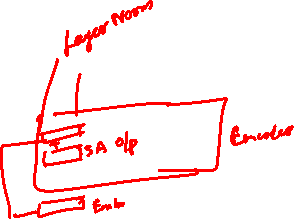 Layer Norm
SA o/p
Encoder
Emb